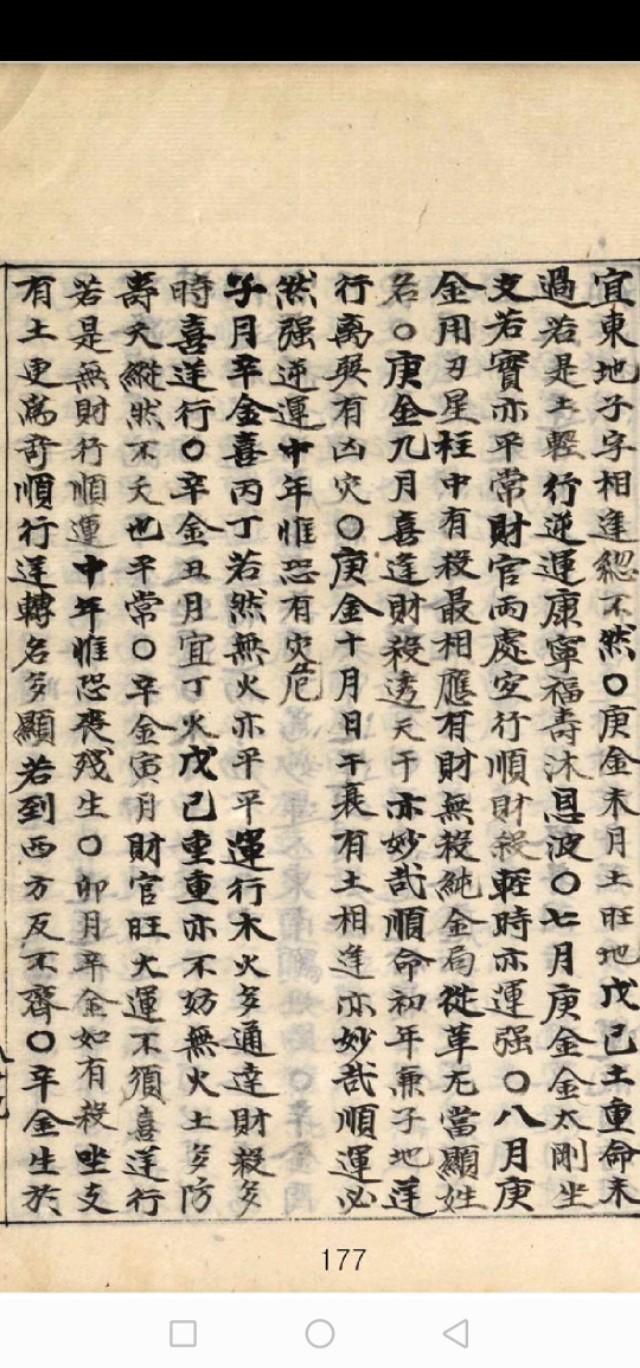 宜東地子字相逢總不然○庚金未月土旺地戊己土重命未
過若是土輕行逆運康寧福壽沐恩波○七月庚金金太剛坐
支若實亦平常財官兩處空行順財殺輕時亦運强○八月庚
金用刃星柱中有殺最相應有財無殺純金局從革无當顯姓
名○庚金九月喜逢財殺透天干亦妙哉順命初年兼子地逆
行离與有凶灾○庚金十月日干衰有土相逢亦妙哉順運必
然强逆運中年惟恐有灾危
子月辛金喜丙丁若然無火亦平平運行木火多通達財殺多
時喜逆行○辛金丑月宜丁火戊己重重亦不妨無火土多防
壽夭縱然不夭也平常○辛金寅月財官旺大運不須喜逆行
若是無財行順運中年惟恐喪残生○卯月辛金如有殺坐支
有土更爲奇順行逆轉名多顯若到西方反不齊○辛金生於
177